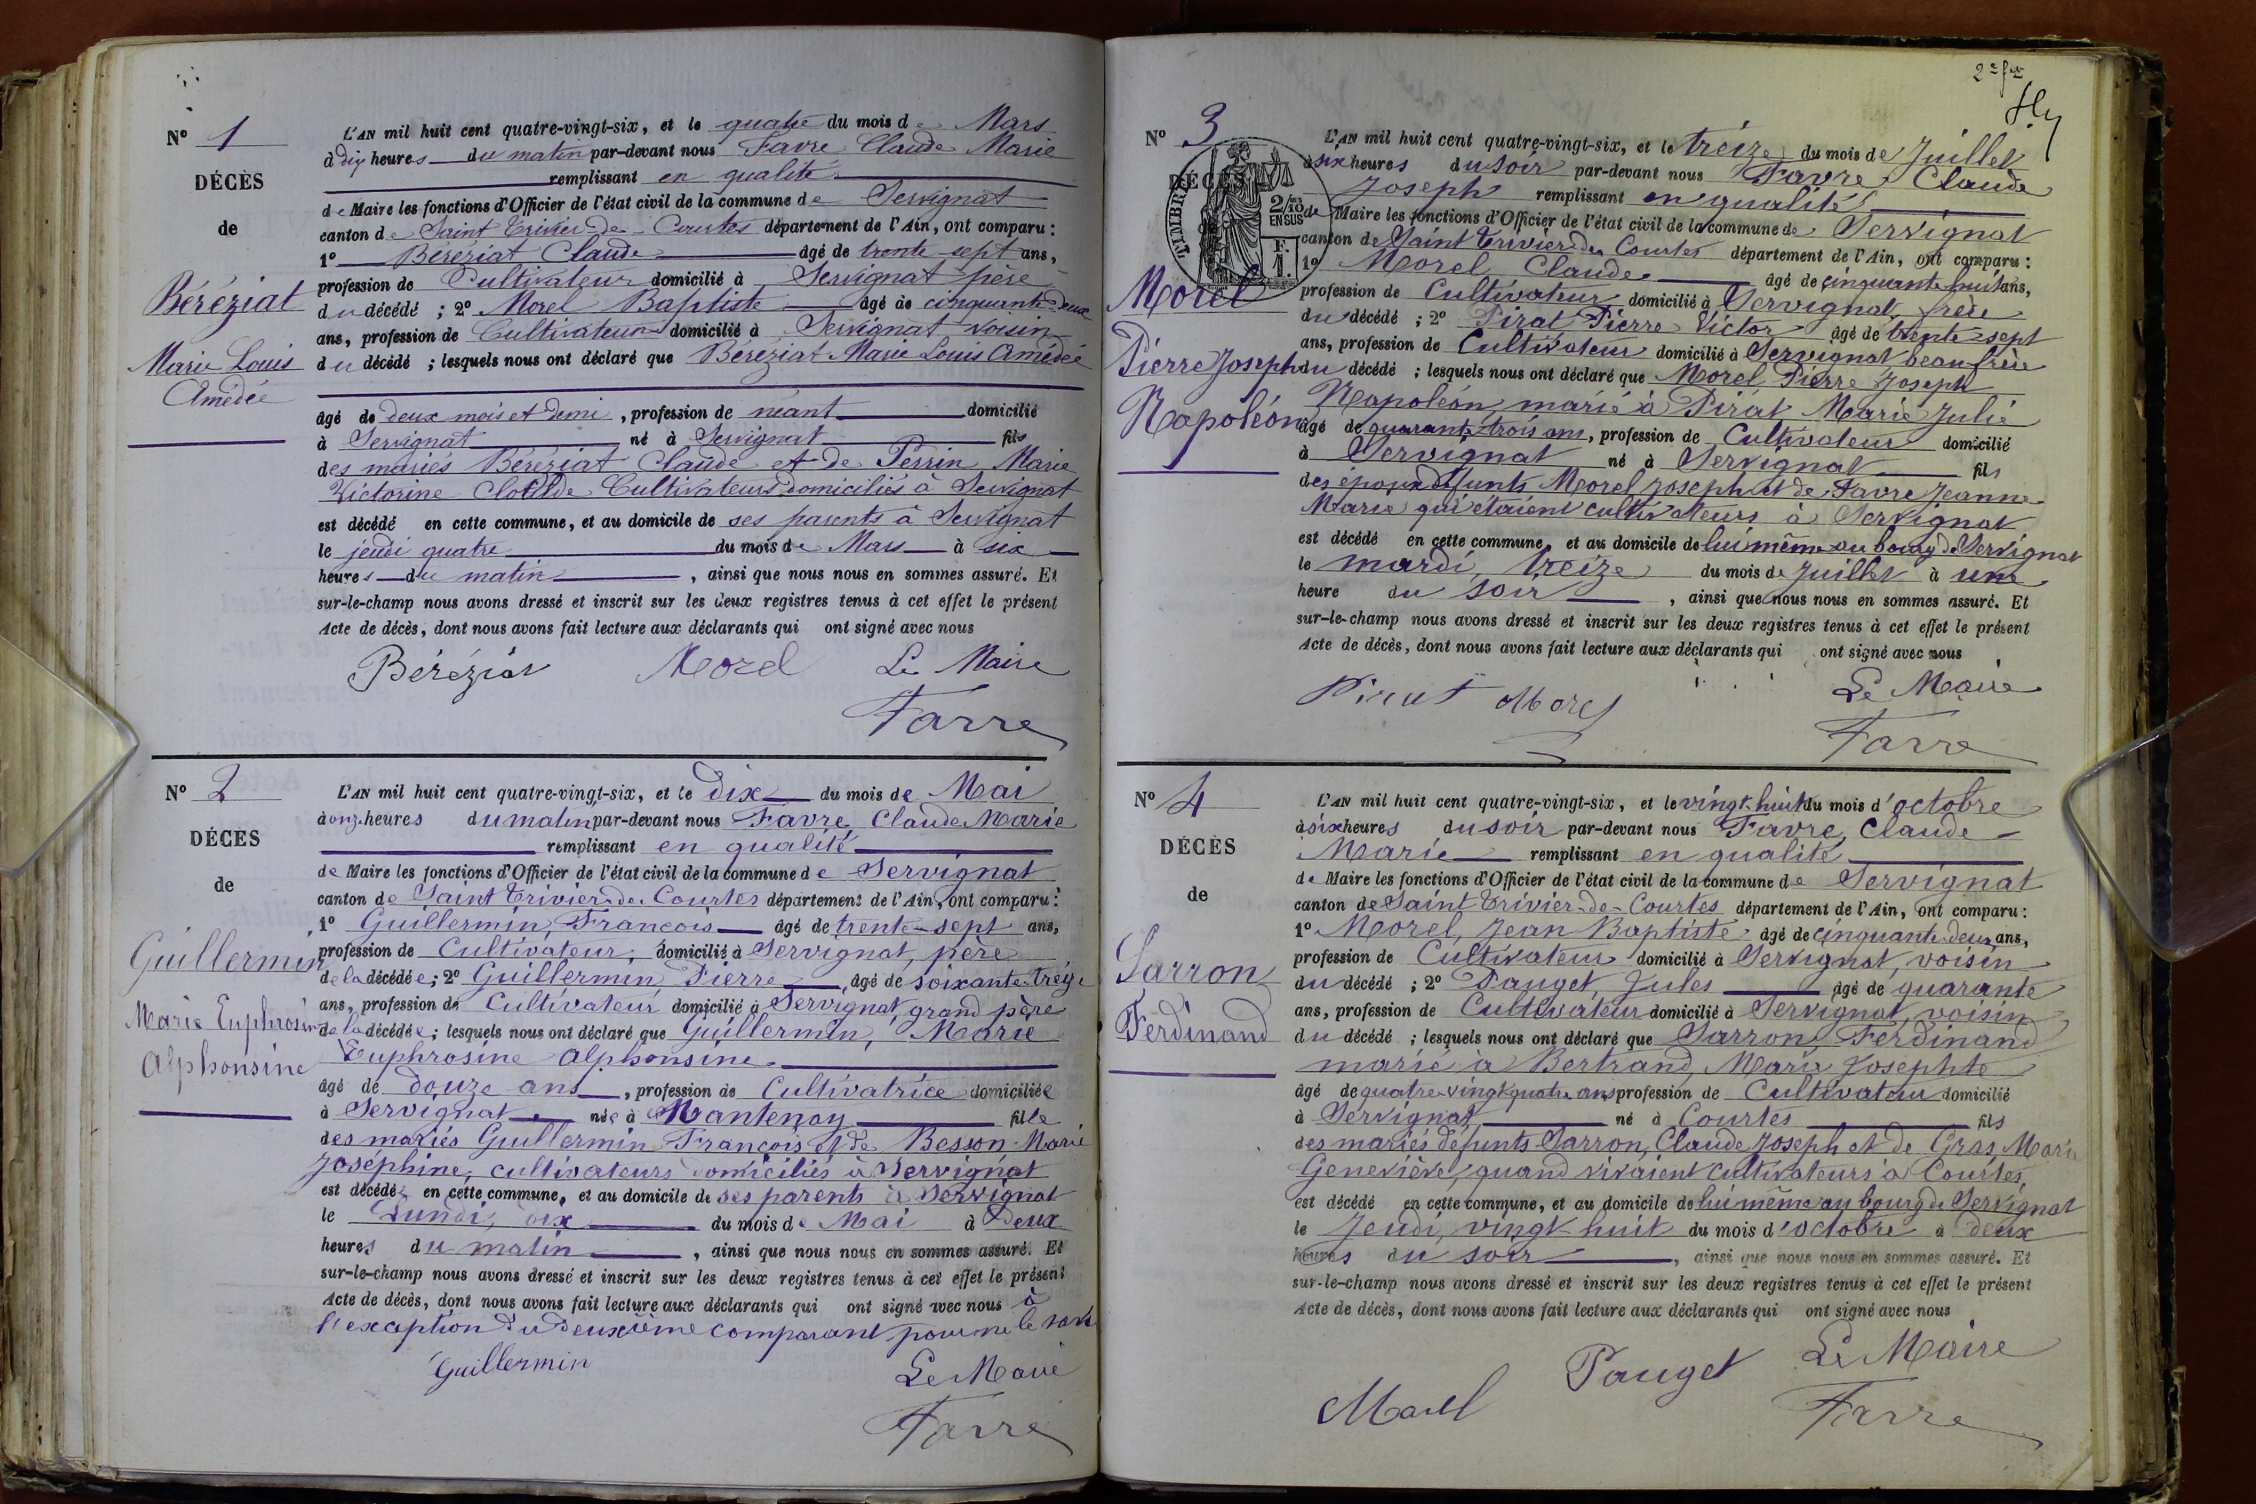 Nº 1
DÉCÈS
de
Béréziat
Marie Louis
Amédée
L'AN mil huit cent quatre-vingt-six, et le quatre du mois de Mars
à dix heures du matin par-devant nous Favre Claude Marie
remplissant en qualité
de Maire les fonctions d'Officier de l'état civil de la commune de Servignat
canton de Saint Trivier de Courtes département de l'Ain, ont comparu :
1º Béréziat Claude âgé de trente sept ans,
profession de Cultivateur domicilié à Servignat père
du décédé ; 2º Morel Baptiste âgé de cinquante deux
ans, profession de Cultivateur domicilié à Servignat voisin
du décédé ; lesquels nous ont déclaré que Béréziat Marie Louis Amédée
âgé de deux mois et demi, profession de néant domicilié
à Servignat né à Servignat fils
des mariés Béréziat Claude et de Perrin Marie
Victorine Clotilde Cultivateurs domiciliés à Servignat
est décédé en cette commune, et au domicile de ses parents à Servignat
le jeudi quatre du mois de Mars à six
heures du matin, ainsi que nous nous en sommes assuré. Et
sur-le-champ nous avons dressé et inscrit sur les deux registres tenus à cet effet le présent
Acte de décès, dont nous avons fait lecture aux déclarants qui ont signé avec nous
Béréziat Morel Le Maire
Favre
Nº 2
DÉCÈS
de
Guillermin
Marie Euphrosine
Alphonsine
L'AN mil huit cent quatre-vingt-six, et le dix du mois de Mai
à onze heures du matin par-devant nous Favre Claude Marie
remplissant en qualité
de Maire les fonctions d'Officier de l'état civil de la commune de Servignat
canton de Saint Trivier de Courtes département de l'Ain, ont comparu :
1º Guillermin, François âgé de trente-sept ans,
profession de Cultivateur, domicilié à Servignat, père
de la décédée ; 2º Guillermin, Pierre, âgé de soixante-treize
ans, profession de Cultivateur domicilié à Servignat, grand père
de la décédée ; lesquels nous ont déclaré que Guillermin, Marie
Euphrosine Alphonsine
âgé de douze ans, profession de Cultivatrice domiciliée
à Servignat née à Mantenay fille
des mariés Guillermin François et de Besson Marie
Joséphine, cultivateurs domiciliés à Servignat
est décédée en cette commune, et au domicile de ses parents à Servignat
le Lundi, dix du mois de Mai à deux
heures du matin, ainsi que nous nous en sommes assuré. Et
sur-le-champ nous avons dressé et inscrit sur les deux registres tenus à cet effet le présent
Acte de décès, dont nous avons fait lecture aux déclarants qui ont signé avec nous à
l'exception du deuxième comparant pour ne le savoir
Guillermin Le Maire
Favre
2e f
Nº 3
DÉCÈS
TIMBRE
2/10 EN SUS
F. 1.
Morel
Pierre Joseph
Napoléon
L'AN mil huit cent quatre-vingt-six, et le treize du mois de Juillet
à six heures du soir par-devant nous Favre Claude
Joseph remplissant en qualité
de Maire les fonctions d'Officier de l'état civil de la commune de Servignat
canton de Saint Trivier de Courtes département de l'Ain, ont comparu :
1º Morel Claude âgé de cinquante huit ans,
profession de Cultivateur domicilié à Servignat, frère
du décédé ; 2º Pirat Pierre Victor âgé de trente-sept
ans, profession de Cultivateur domicilié à Servignat beau frère
du décédé ; lesquels nous ont déclaré que Morel Pierre Joseph
Napoléon, marié à Pirat Marie Julie
âgé de quarante trois ans, profession de Cultivateur domicilié
à Servignat né à Servignat fils
des époux défunts Morel Joseph et de Favre Jeanne
Marie qui étaient cultivateurs à Servignat
est décédé en cette commune, et au domicile de lui même au bourg de Servignat
le mardi, treize du mois de Juillet à une
heure du soir, ainsi que nous nous en sommes assuré. Et
sur-le-champ nous avons dressé et inscrit sur les deux registres tenus à cet effet le présent
Acte de décès, dont nous avons fait lecture aux déclarants qui ont signé avec nous
Pirat Morel Le Maire
Favre
Nº 4
DÉCÈS
de
Sarron
Ferdinand
L'AN mil huit cent quatre-vingt-six, et le vingt huit du mois d'octobre
à six heures du soir par-devant nous Favre, Claude
Marie remplissant en qualité
de Maire les fonctions d'Officier de l'état civil de la commune de Servignat
canton de Saint Trivier-de-Courtes département de l'Ain, ont comparu :
1º Morel, Jean Baptiste âgé de cinquante deux ans,
profession de Cultivateur domicilié à Servignat, voisin
du décédé ; 2º Pauget, Jules âgé de quarante
ans, profession de Cultivateur domicilié à Servignat, voisin
du décédé ; lesquels nous ont déclaré que Sarron, Ferdinand
marié à Bertrand, Marie Josephte
âgé de quatre-vingt quatre ans profession de Cultivateur domicilié
à Servignat, né à Courtes fils
des mariés défunts Sarron, Claude Joseph et de Gras, Marie
Geneviève, quand vivaient cultivateurs à Courtes,
est décédé en cette commune, et au domicile de lui même au bourg de Servignat
le Jeudi, vingt huit du mois d'octobre à deux
heures du soir, ainsi que nous nous en sommes assuré. Et
sur-le-champ nous avons dressé et inscrit sur les deux registres tenus à cet effet le présent
Acte de décès, dont nous avons fait lecture aux déclarants qui ont signé avec nous
Morel Pauget Le Maire
Favre